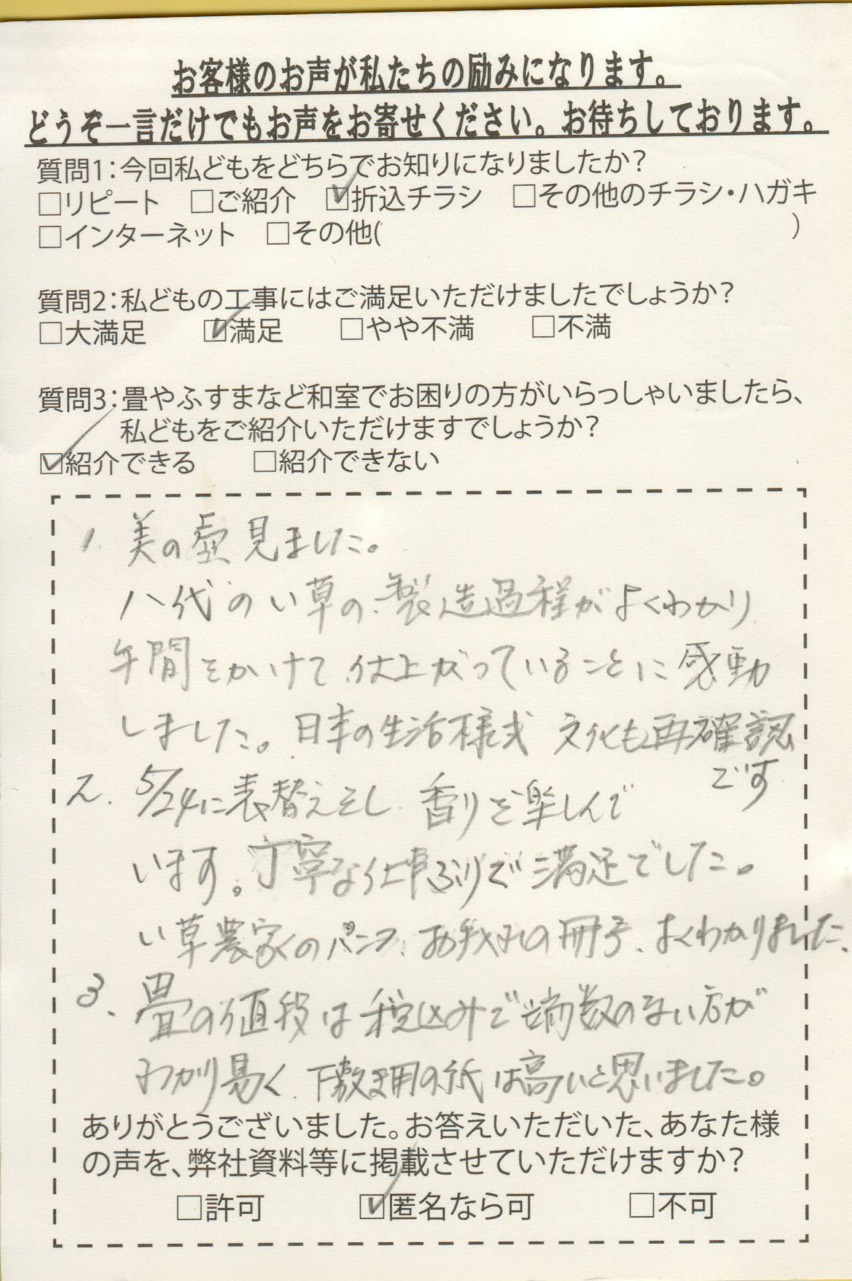 お客様のお声が私たちの励みになります。
どうぞ一言だけでもお声をお寄せください。お待ちしております。
質問1:今回私どもをどちらでお知りになりましたか?
□リピート □ご紹介 ☑折込チラシ □その他のチラシ・ハガキ
□インターネット □その他( )
質問2:私どもの工事にはご満足いただけましたでしょうか?
□大満足 ☑満足 □やや不満 □不満
質問3:畳やふすまなど和室でお困りの方がいらっしゃいましたら、
私どもをご紹介いただけますでしょうか?
☑紹介できる □紹介できない
1. 美の壺見ました。
八代のい草の製造過程がよくわかり
年間をかけて仕上がっていることに感動
しました。日本の生活様式 文化も再確認
です
2. 5/24に表替えをし 香りを楽しんで
います。丁寧な仕事ぶりで満足でした。
い草農家のパンフ、お手入れの冊子、よくわかりました、
3. 畳の値段は税込みで端数のない方が
わかり易く、下敷き用の紙は高いと思いました。
ありがとうございました。お答えいただいた、あなた様
の声を、弊社資料等に掲載させていただけますか?
□許可 ☑匿名なら可 □不可